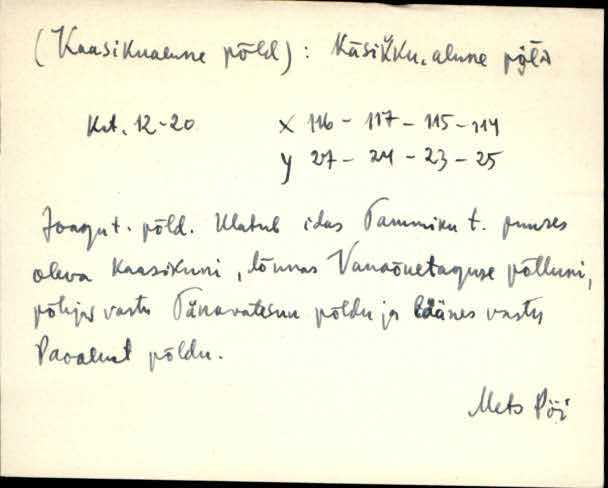 (Kaasikualune põld) : Kāsikku, alune põlD
Krt. 12-20 X 116 - 117 - 115 - 114
y 27 - 24 - 23 - 25
Joagu t. põld. Ulatub idas Tammiku t. puures
oleva Kaasikuni, lõunas Vanaõuetaguse põlluni,
põhjas vastu Tänavatesuu põldu ja läänes vastu
Paealust põldu.
Mets Pöi